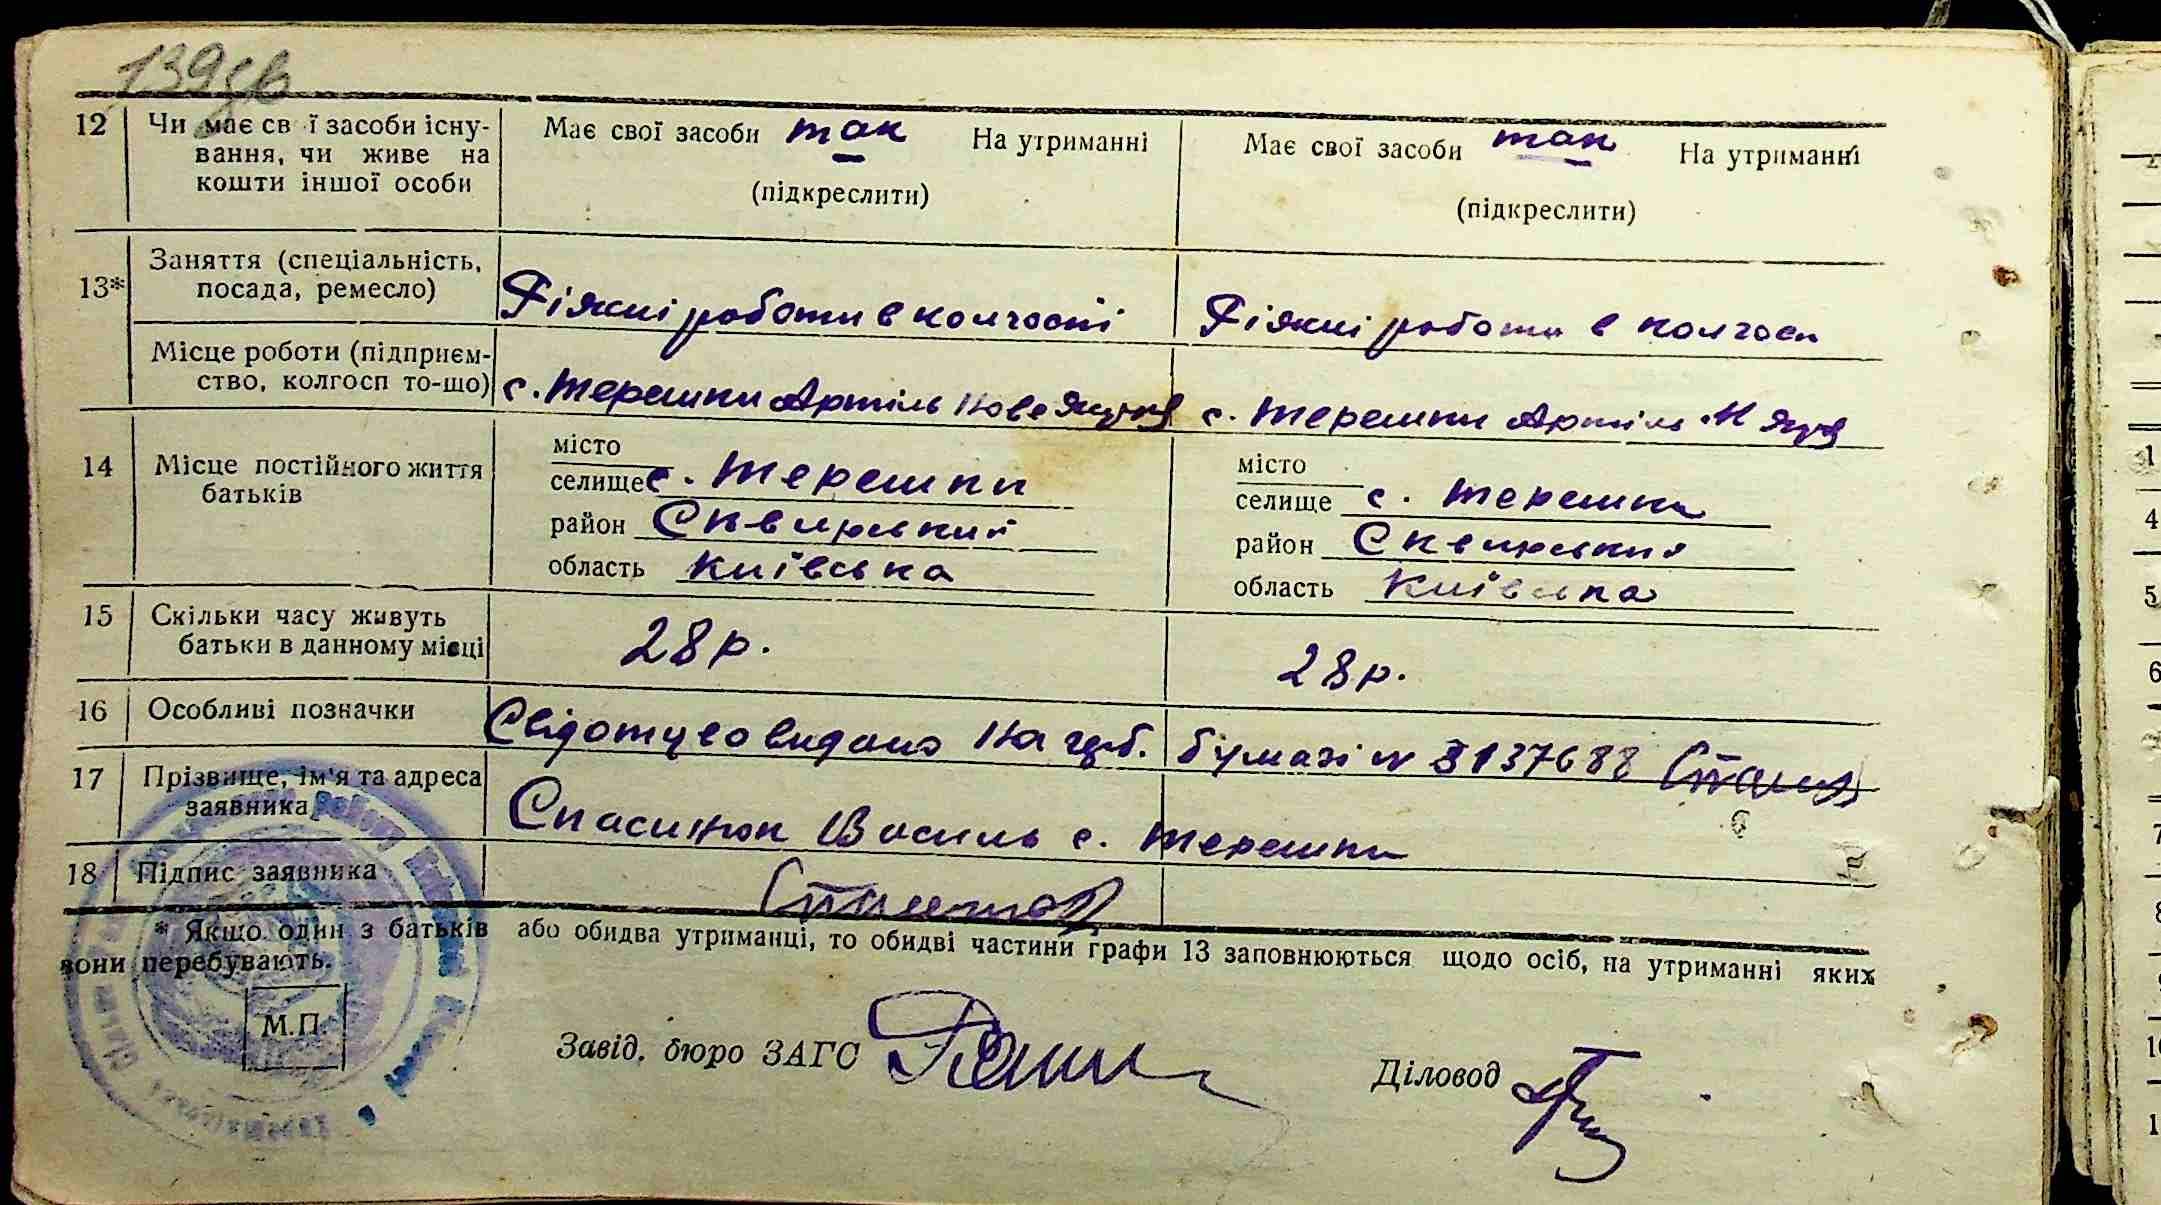 12 Чи має св ї засоби існу-
вання, чи живе на
кошти іншої особи
Має свої засоби так На утриманні
(підкреслити)
Має свої засоби так На утриманні
(підкреслити)
13* Заняття (спеціальність,
посада, ремесло)
Ріжні роботи в колгоспі
Ріжні роботи в колгосп
Місце роботи (підприєм-
ство, колгосп то-що)
с. Терешки Артіль Нове
с. Терешки Артіль
14 Місце постійного життя
батьків
місто
селище с. Терешки
район Сквирський
область Київська
місто
селище с. Терешки
район Сквирський
область Київська
15 Скільки часу живуть
батьки в данному місці
28 р.
28 р.
16 Особливі позначки
видано на бумазі №
17 Прізвище, ім'я та адреса
заявника
Василь с. Терешки
18 Підпис заявника
* Якщо один з батьків або обидва утриманці, то обидві частини графи 13 заповнюються щодо осіб, на утриманні яких
вони перебувають.
М.П.
Завід. бюро ЗАГС
Діловод